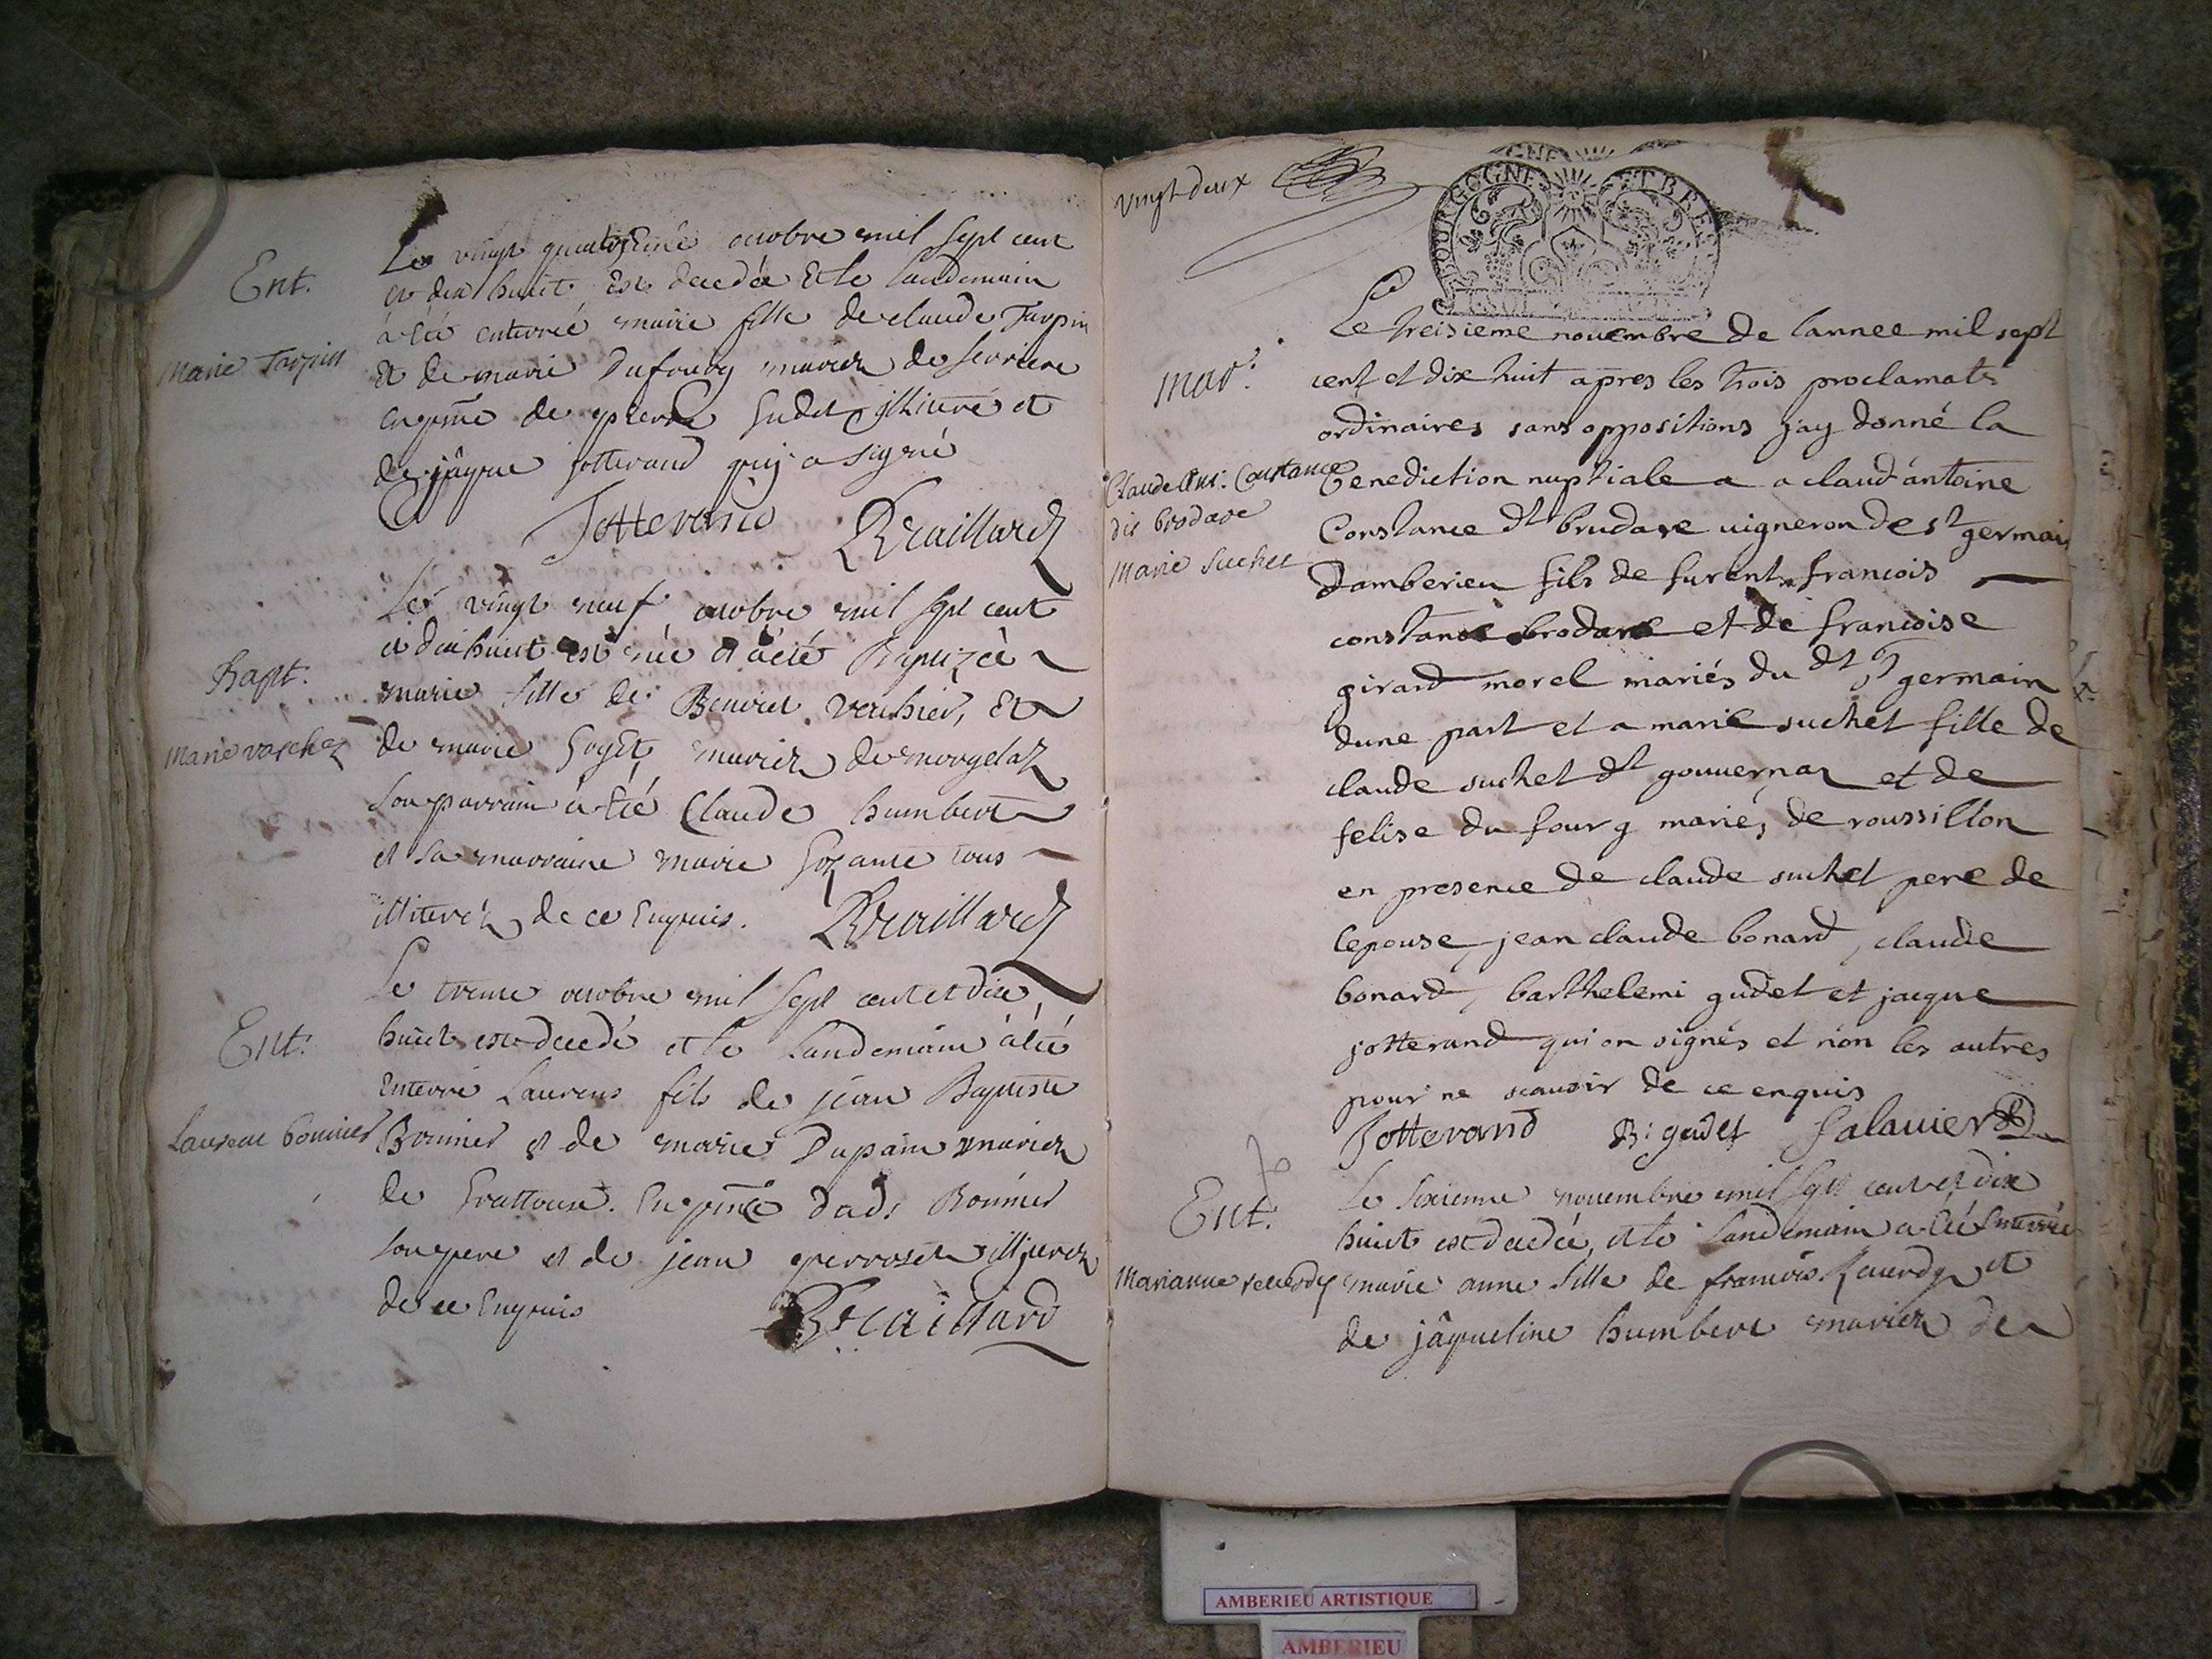 Ent.
Marie Tarpin
Le vingt quatrieme octobre mil sept cent
et dix huict est decedée et le landemain
a été enterrée marie fille de claude Tarpin
et de marie Dufourg mariez de
en pnce de pierre Gudet illiteré et
de jâque jotterand qui a signé
Jotterand Braillard
Bapt.
Marie vaschez
Le vingt neuf octobre mil sept cent
et dix huict est née et a été Baptizée
marie fille de Benoict Vachier, et
de marie Goyet mariez de morgelaz
son parrain a été Claude humbert
et sa marraine marie tous
illiterez de ce Enquis. Braillard
Ent:
Laurent bonnier
Le trente octobre mil sept cent et dix
huict est decedé et le landemain a été
enterré Laurens fils de jean Baptiste
Bonnier et de marie Dupain mariez
de Grattoux. En pnce dudt Bonnier
son pere et de jean perroset illiterez
de ce Enquis Braillard
vingt deux
BOURGOGNE ET BRE
mar:
Claude Ant: Constance
dit brodare
Marie Suchet
Le treisieme novembre de lannee mil sept
cent et dix huit apres les trois proclamats
ordinaires sans oppositions jay donné la
benediction nuptiale a a claud antoine
Constance dt brudare vigneron de st germain
damberieu fils de furent francois
constance brodare et de francoise
girard morel mariés du dt st germain
dune part et a marie suchet fille de
claude suchet dt gouvernar et de
felise du fourg mariés de roussillon
en presence de claude suchet pere de
lepouse, jean claude bonard, claude
bonard, barthelemi gudet et jacque
jotterand qui on signés et non les autres
pour ne scavoir de ce enquis
Jotterand B: gudet Salavier
Ent:
Marianne reverdy
Le sixieme novembre mil sept cent et dix
huict est decedée, et le landemain a été enterrée
marie anne fille de francois Reverdy et
de jâqueline humbert mariez de
AMBERIEU ARTISTIQUE
AMBERIEU